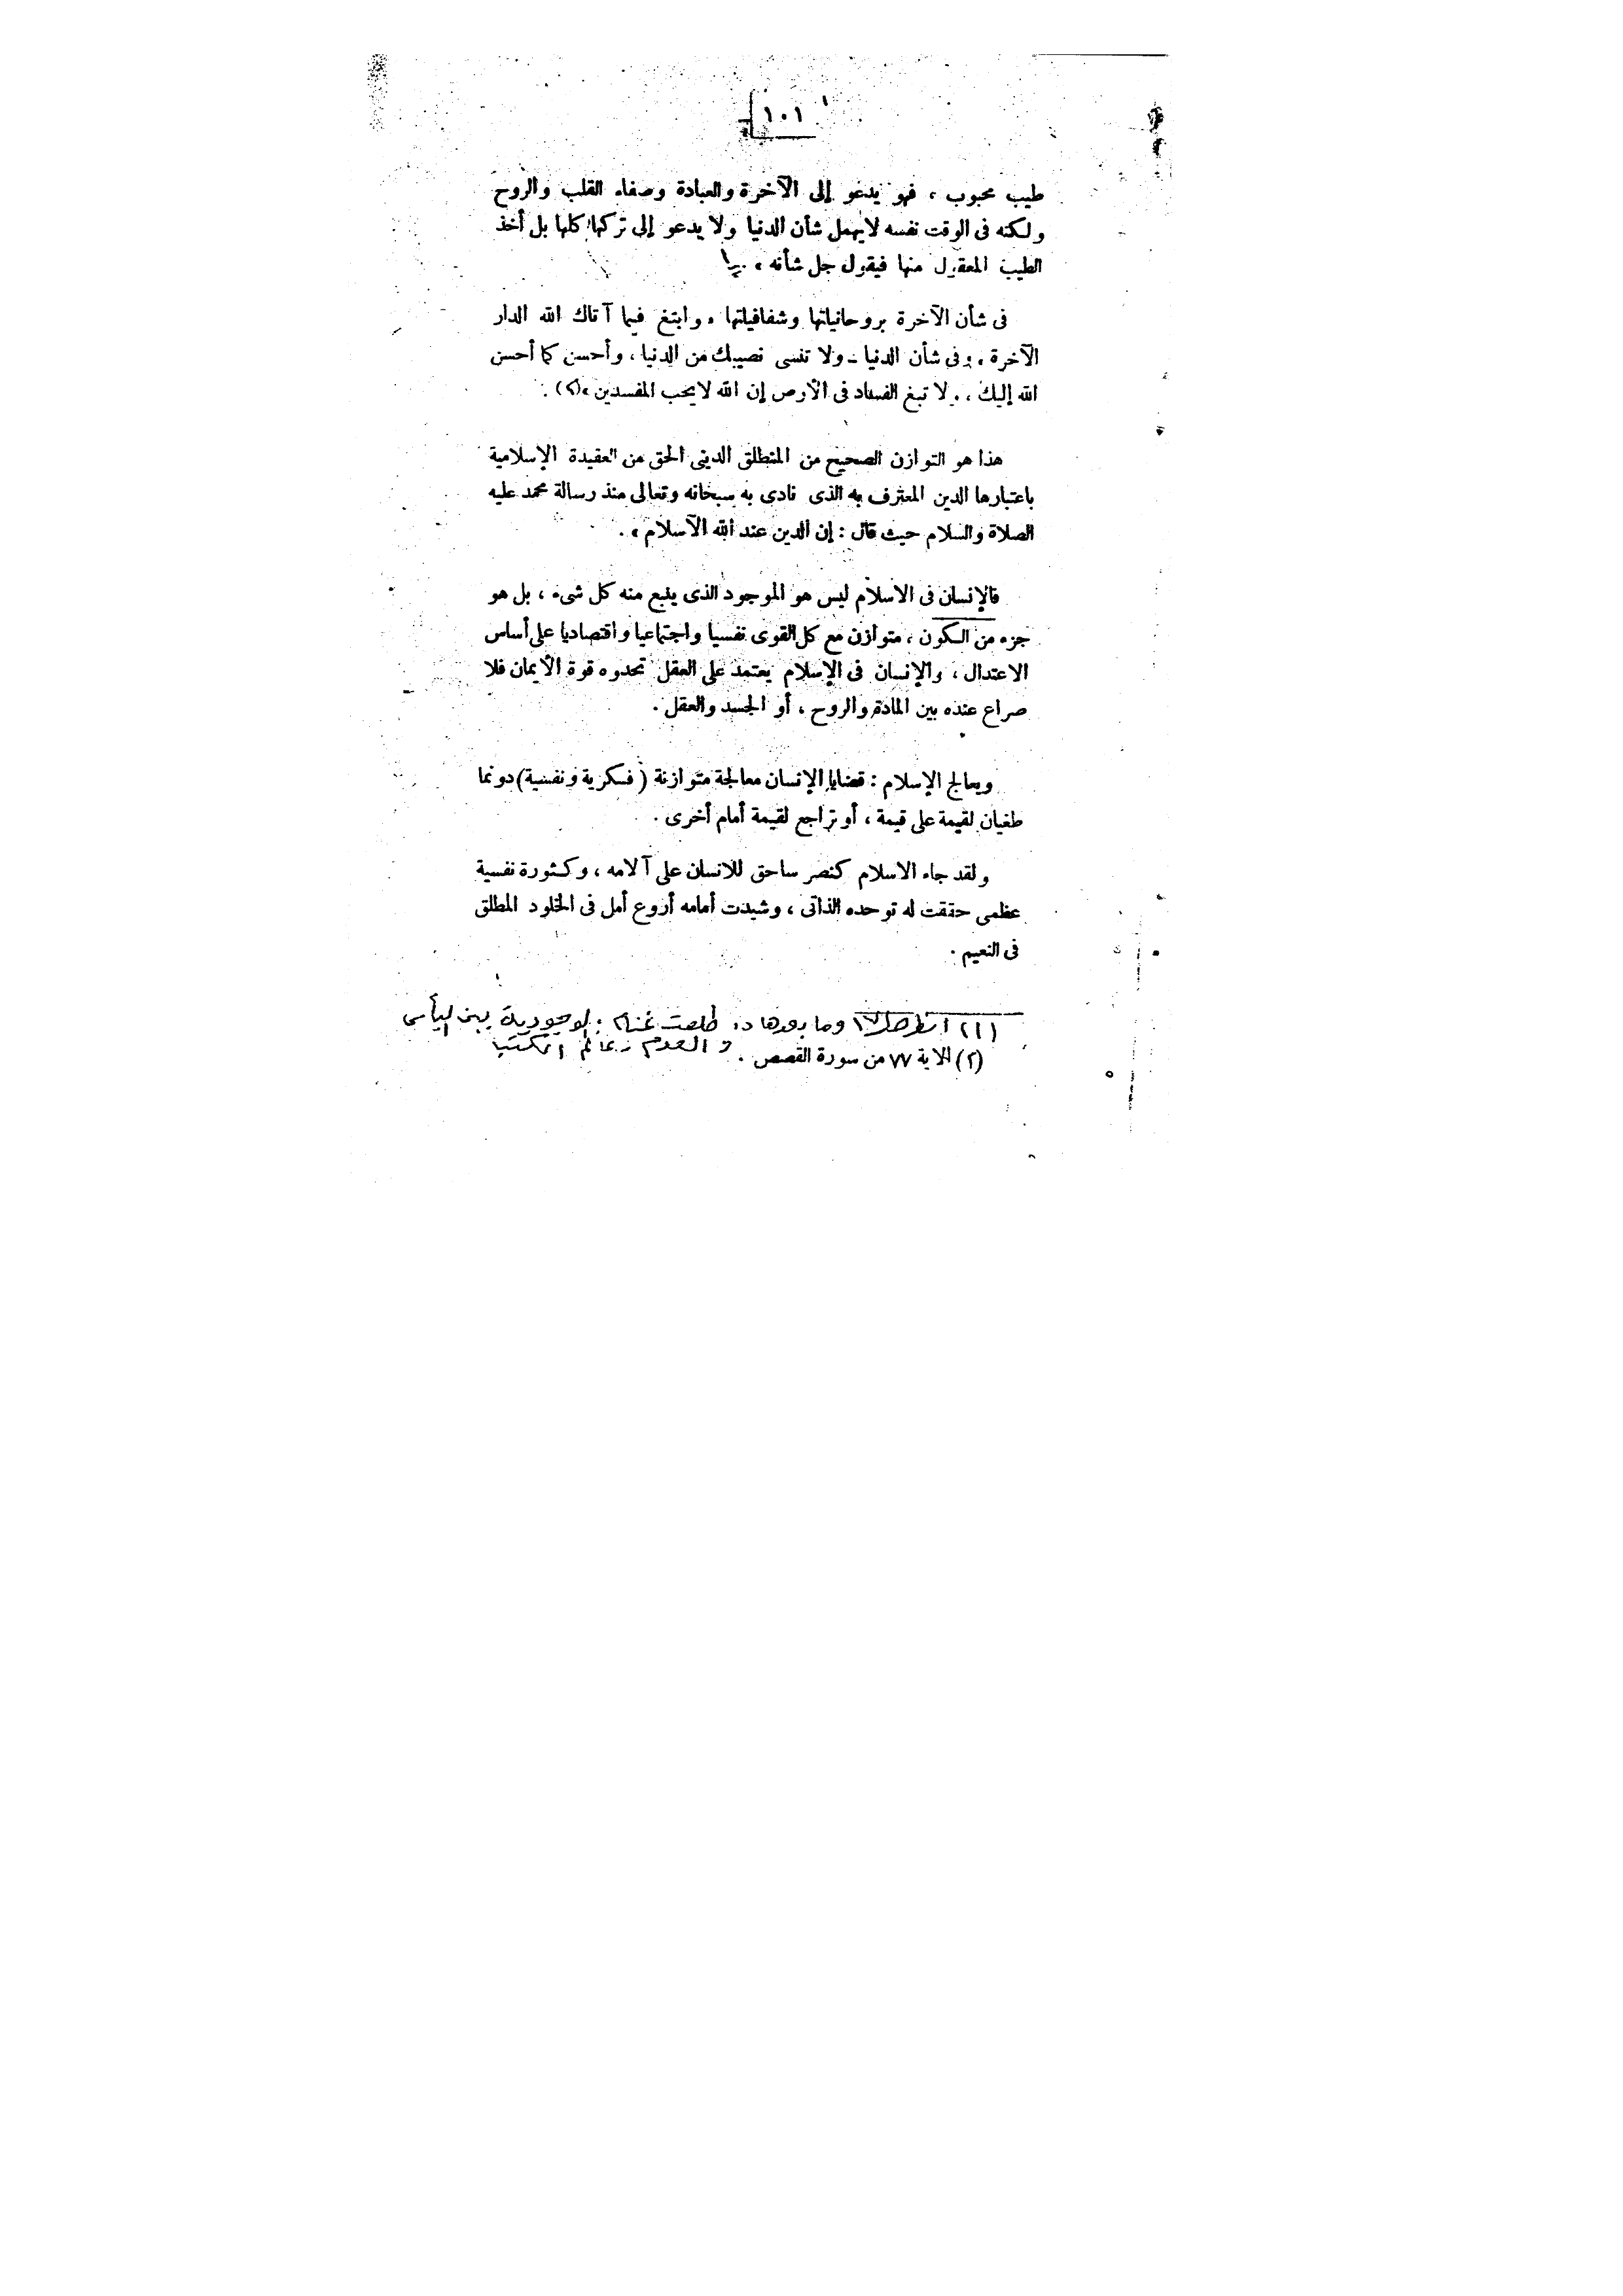 ١٠١
طيب محبوب ، فهو يدعو إلى الآخرة والعبادة وصفاء القلب والروح
ولكنه فى الوقت نفسه لايهمل شأن الدنيا ولا يدعو إلى تركها كلها بل أخذ
الطيب المعقول منها فيقول جل شأنه ،
فى شأن الآخرة بروحانياتها وشفافيلتها ، وابتغ فيما آتاك الله الدار
الآخرة ، وفى شأن الدنيا - ولا تنسى نصيبك من الدنيا ، وأحسن كما أحسن
الله إليك ، . لا تبغ الفساد فى الأرض إن الله لايحب المفسدين ،(٢) .
هذا هو التوازن الصحيح من المنطلق الدينى الحق من العقيدة الإسلامية
باعتبارها الدين المعترف به الذى نادى به سبحانه وتعالى منذ رسالة محمد عليه
الصلاة والسلام حيث قال : إن الدين عند الله الآسلام ، .
فالإنسان فى الاسلام ليس هو الموجود الذى ينبع منه كل شىء ، بل هو
جزء من الكون ، متوازن مع كل القوى نفسيا واجتماعيا واقتصاديا على أساس
الاعتدال ، والإنسان فى الإسلام يعتمد على العقل تحدوه قوة الأيمان فلا
صراع عنده بين المادة والروح ، أو الجسد والعقل .
ويعالج الإسلام : قضايا الإنسان معالجة متوازنة ( فكرية ونفسية ) دونما
طغيان لقيمة على قيمة ، أو تراجع لقيمة أمام أخرى .
ولقد جاء الاسلام كنصر ساحق للانسان على آلامه ، وكثورة نفسية
عظمى حققت له توحده الذاتى ، وشيدت أمامه أروع أمل فى الخلود المطلق
فى النعيم .
(١) انظر ص ١٧ وما بعدها د. طلعت غنام : الوجودية بين اليأس
والعدم عالم الكتب
(٢) الاية ٧٧ من سورة القصص .